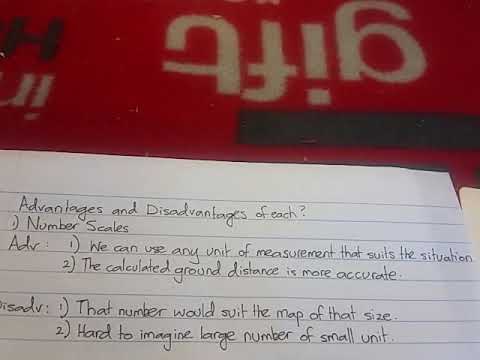 gift
in
Advantages and Disadvantages of each?
1) Number Scales
Adv: 1) We can use any unit of measurement that suits the situation
2) The calculated ground distance is more accurate.
Disadv: 1) That number would suit the map of that size.
2) Hard to imagine large number of small unit.